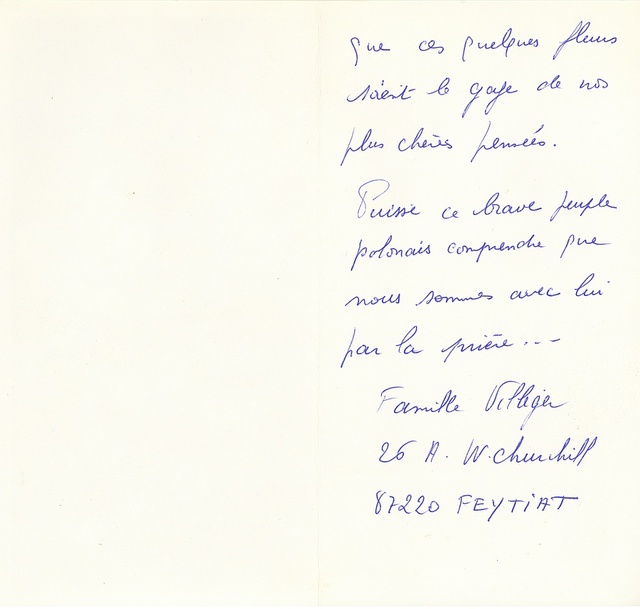 que ces quelques fleurs
soient le gage de nos
plus chères pensées.
Puisse ce brave peuple
polonais comprendre que
nous sommes avec lui
par la prière...
Famille Villiger
26 A. W. Churchill
87220 FEYTIAT